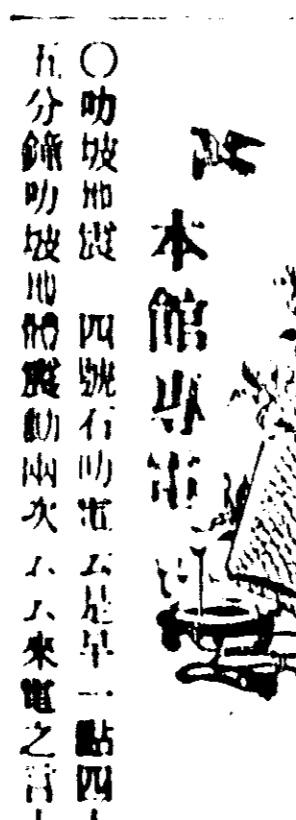 本館專電
○叻坡地震　四號石叻電云是早一點四
五分鐘叻坡地體震動兩次云云來電之言